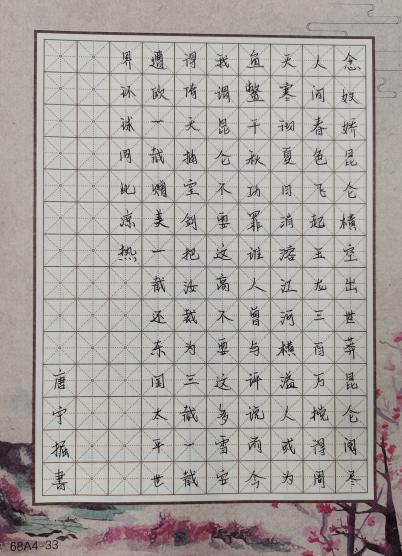 念奴娇昆仑横空出世莽昆仑阅尽
人间春色飞起玉龙三百万搅得周
天寒彻夏日消溶江河横溢人或为
鱼鳖千秋功罪谁人曾与评说而今
我谓昆仑不要这高不要这多雪安
得倚天抽宝剑把汝裁为三截一截
遗欧一截赠美一截还东国太平世
界环球同此凉热
唐宇掘書
68A4-33